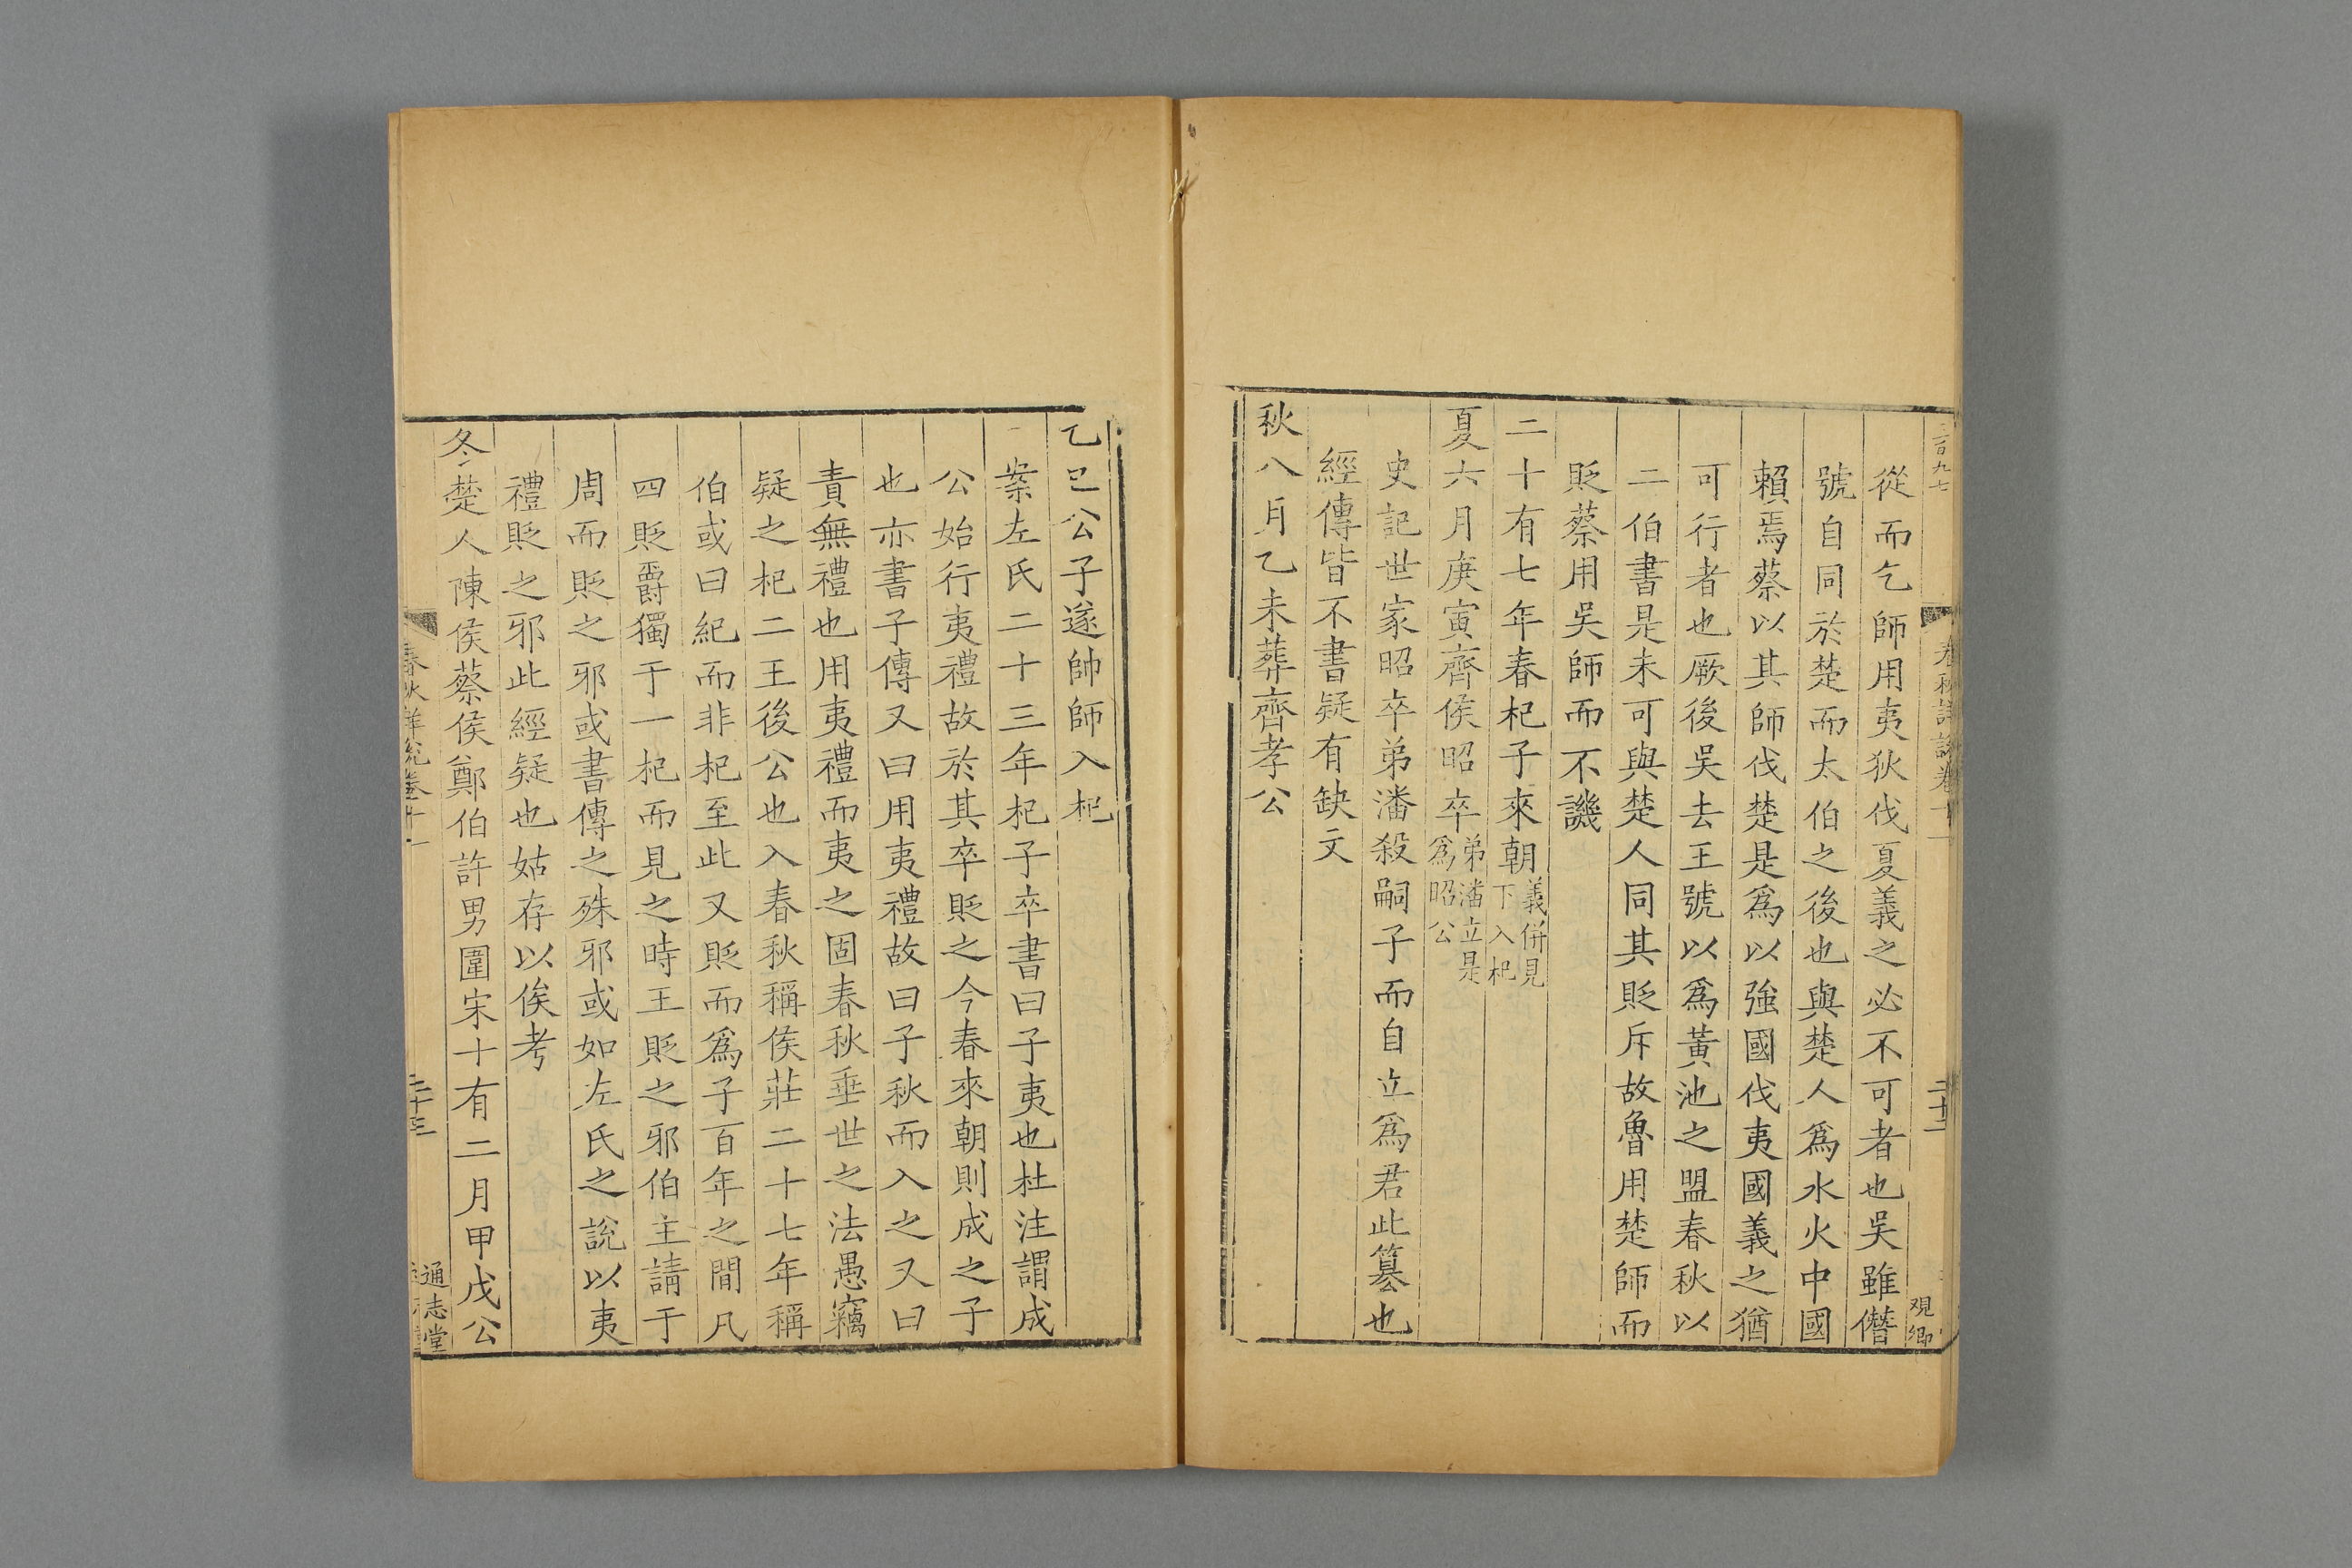 二百九七
春秋詳說卷十一
二十二
觀卿
從而乞師用夷狄伐夏義之必不可者也吳雖僭
號自同於楚而太伯之後也與楚人爲水火中國
賴焉蔡以其師伐楚是爲以強國伐夷國義之猶
可行者也厥後吳去王號以爲黃池之盟春秋以
二伯書是未可與楚人同其貶斥故魯用楚師而
貶蔡用吳師而不譏
二十有七年春杞子來朝義併見
下入杞
夏六月庚寅齊侯昭卒弟潘立是
爲昭公
史記世家昭卒弟潘殺嗣子而自立爲君此簒也
經傳皆不書疑有缺文
秋八月乙未葬齊孝公
乙巳公子遂帥師入杞
案左氏二十三年杞子卒書曰子夷也杜注謂成
公始行夷禮故於其卒貶之今春來朝則成之子
也亦書子傳又曰用夷禮故曰子秋而入之又曰
責無禮也用夷禮而夷之固春秋垂世之法愚竊
疑之杞二王後公也入春秋稱侯莊二十七年稱
伯或曰紀而非杞至此又貶而爲子百年之間凡
四貶爵獨于一杞而見之時王貶之邪伯主請于
周而貶之邪或書傳之殊邪或如左氏之說以夷
禮貶之邪此經疑也姑存以俟考
冬楚人陳侯蔡侯鄭伯許男圍宋十有二月甲戌公
春秋詳說卷十一
二十三
通志堂